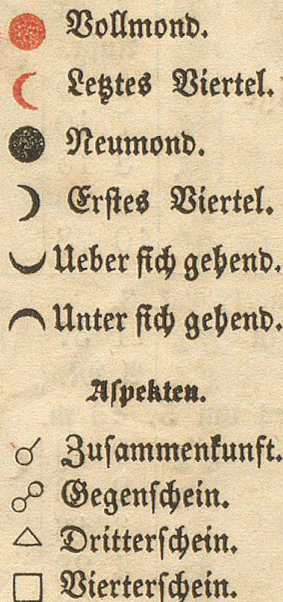 Vollmond.
Letztes Viertel.
Neumond.
Erstes Viertel.
Ueber sich gehend.
Unter sich gehend.
Aspekten.
☌ Zusammenkunft.
☍ Gegenschein.
△ Dritterschein.
□ Vierterschein.